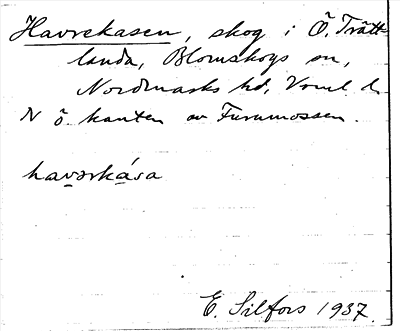 Havrekasen, skog i Ö. Trätt-
landa, Blomskogs sn,
Nordmarks hd, Vrml. d.
N ö. kanten av Furumossen.
havərkása
E. Silfors 1937.